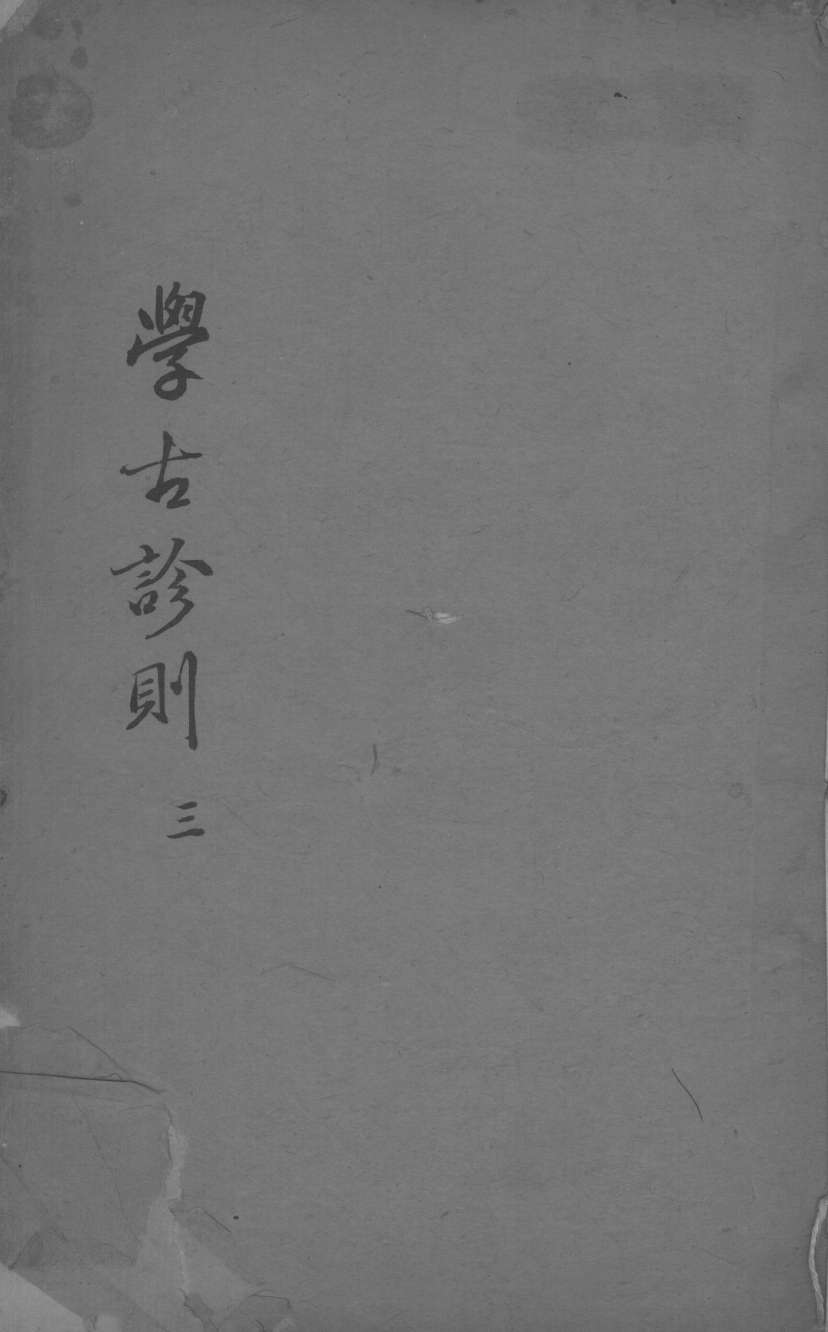 學古診則 三